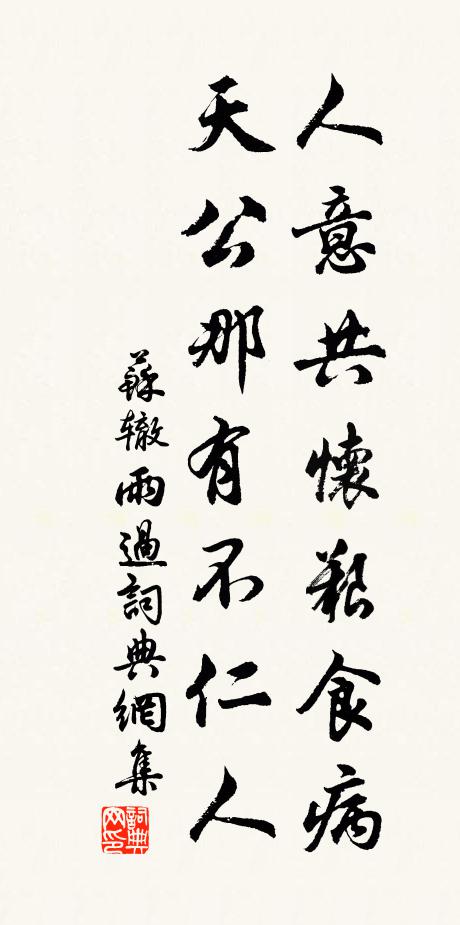 人意共懷艱食病
天公那有不仁人
蘇辙雨過詞典網集
詞典
网印